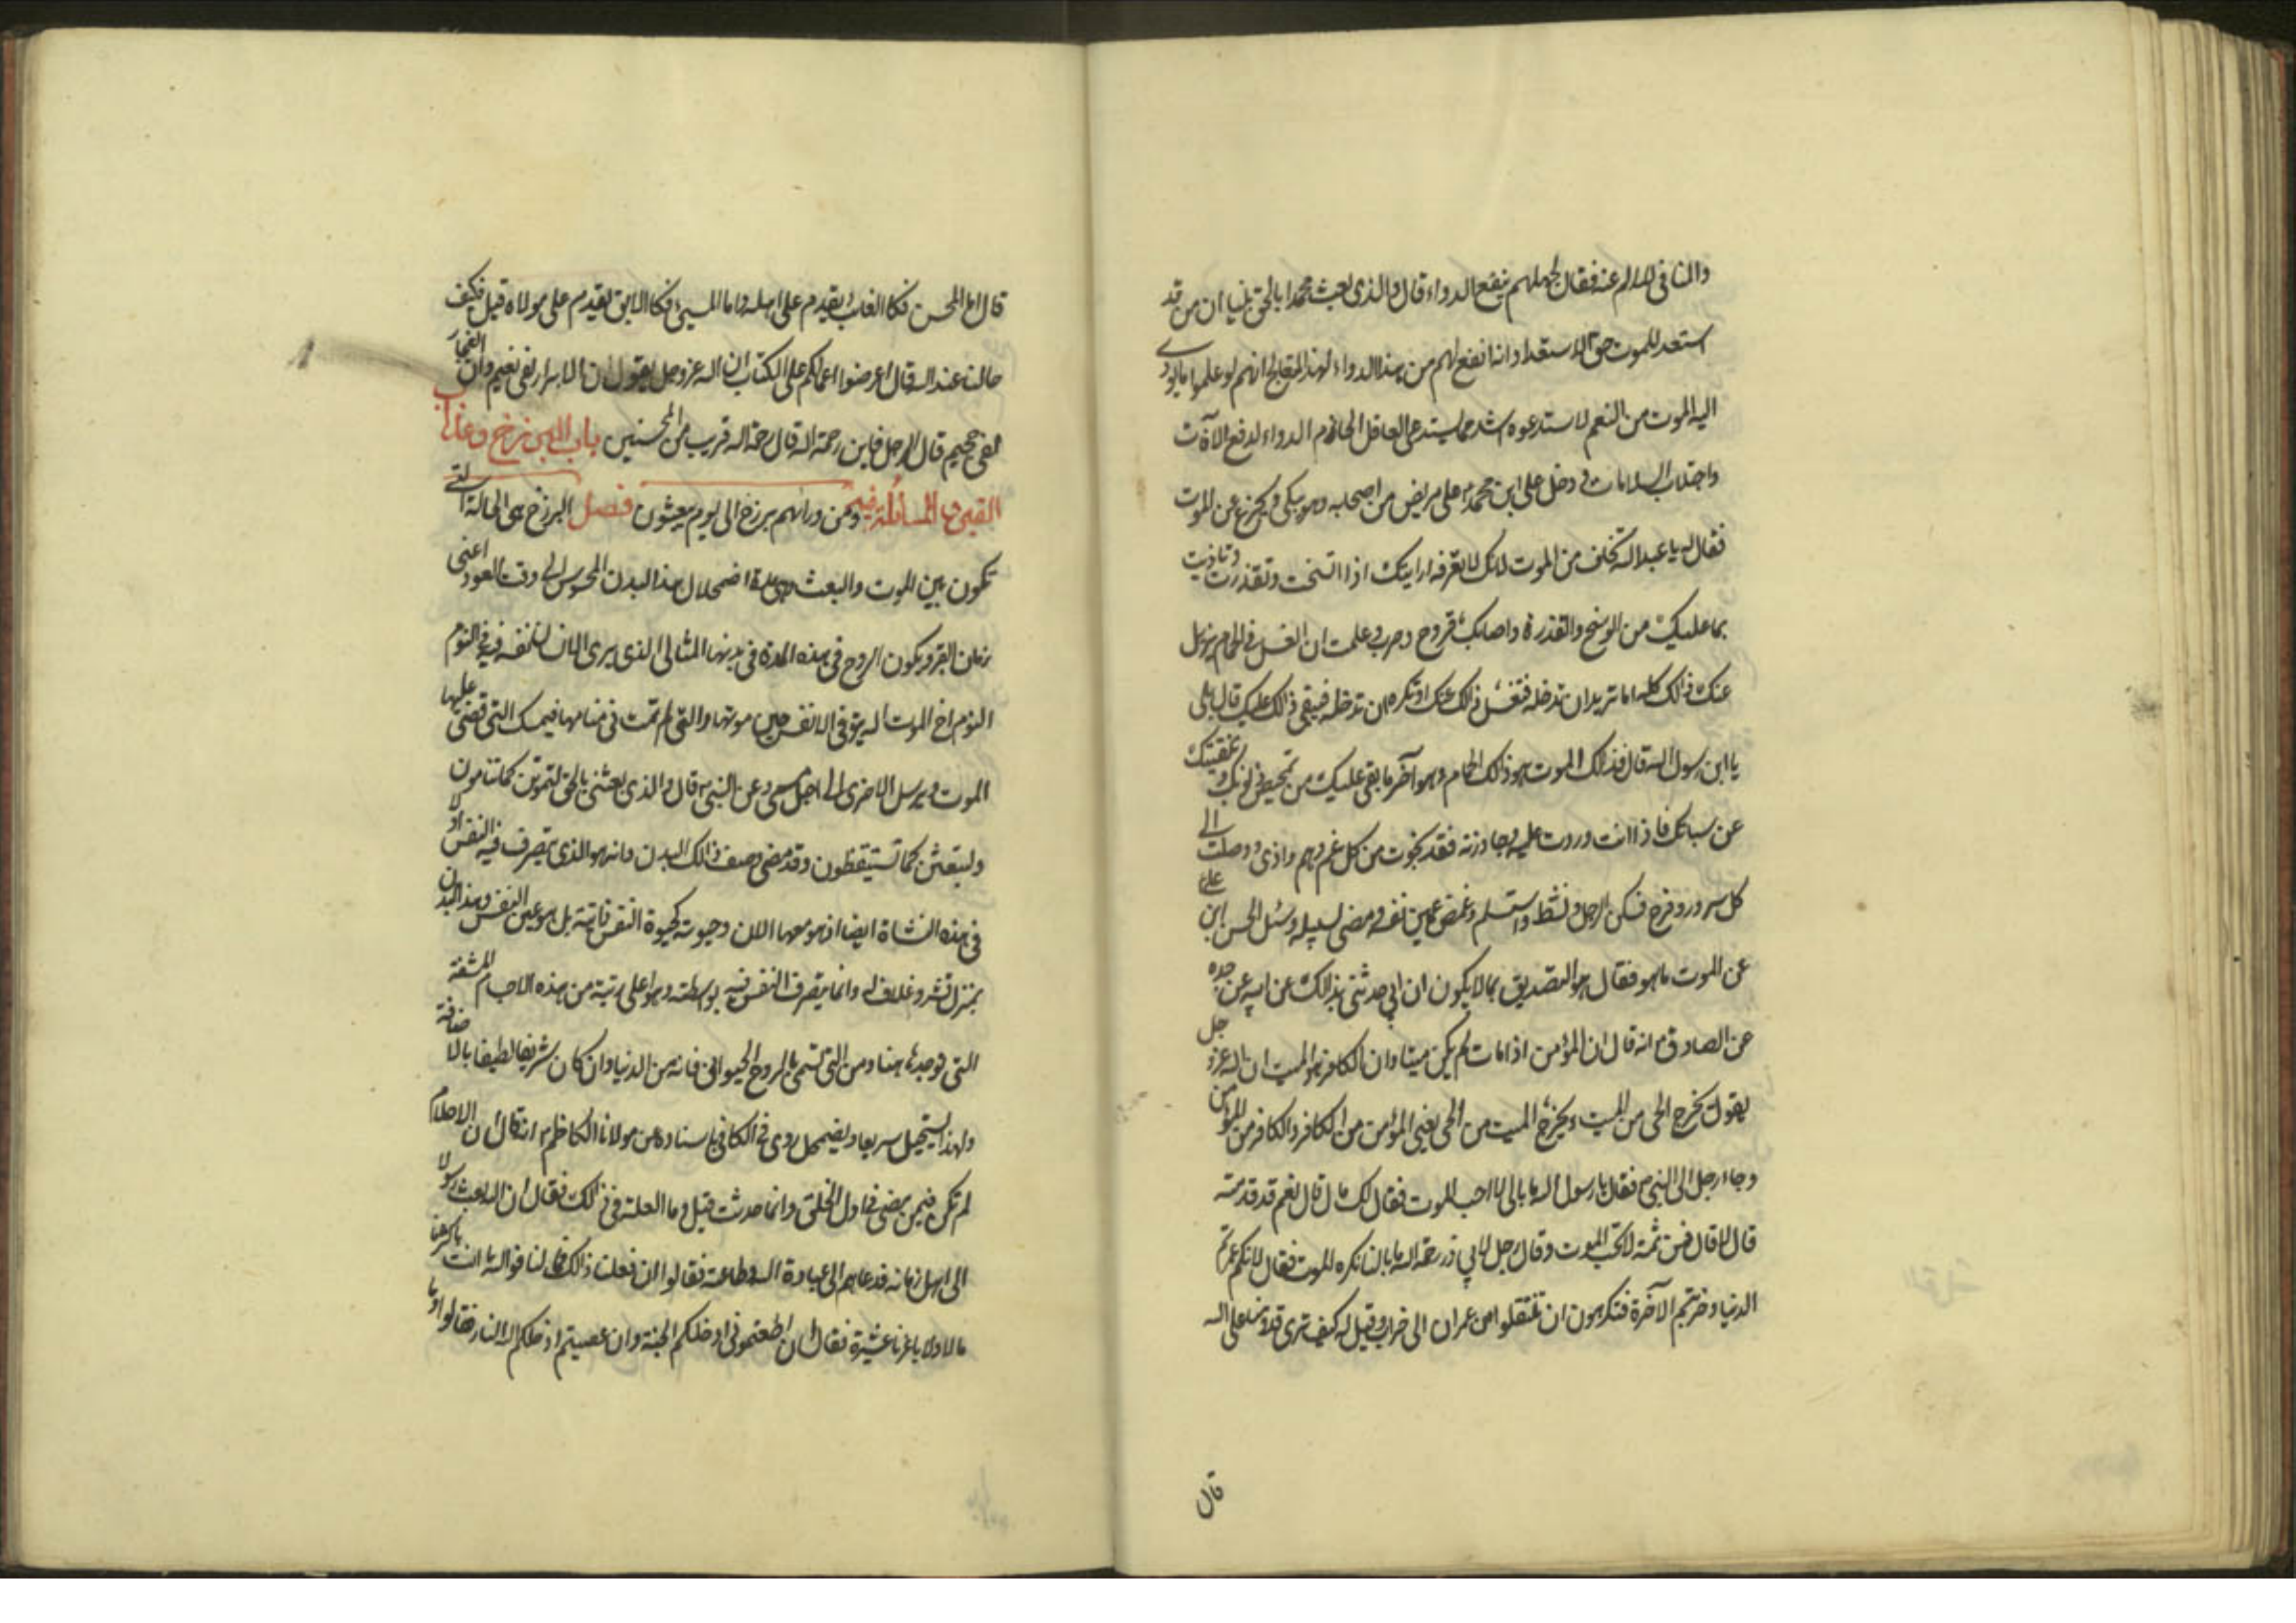 والنافى للالم عنه فقال لجهلهم بنفع الدواء قال والذى بعث محمدا بالحق نبيا ان من قد
استعد للموت حق الاستعداد انه انفع لهم من هذا الدواء لهذا المتعالج انهم لو علموا ما يؤدى
اليه الموت من النعم لاستدعوه اشد مما يستدعى العاقل الحازم الدواء لدفع الآفات
واجتلاب السلامات و دخل على ابن محمد ع على مريض من اصحابه وهو يبكى و يجزع من الموت
فقال له يا عبد الله تخاف من الموت لانك لا تعرفه ارايتك اذا اتسخت وتقذرت وتاذيت
بما عليك من الوسخ والقذرة واصابك قروح وجرب وعلمت ان الغسل فى حمام يزيل
عنك ذالك كله اما تريد ان تدخله فتغسل ذالك عنك او تكره ان تدخله فيبقى ذالك عليك قال بلى
يا ابن رسول الله قال فذالك الموت هو ذالك الحمام وهو آخر ما بقى عليك من تمحيص ذنوبك وتنقيتك
عن سيئاتك فاذا انت وردت عليه وجاوزته فقد نجوت من كل غم وهم واذى ووصلت الى
كل سرور وفرح فسكن الرجل ونشط واستسلم وغمض عين نفسه ومضى لسبيله وسئل الحسن ابن على
عن الموت ما هو فقال هو التصديق بما لا يكون ان ابى حدثنى بذالك عن ابيه عن جده
عن الصادق ع انه قال ان المؤمن اذا مات لم يكن ميتا وان الكافر هو الميت ان الله عز و جل
يقول يخرج الحى من الميت ويخرج الميت من الحى يعنى المؤمن من الكافر والكافر من المؤمن
وجاء رجل الى النبى ص فقال يا رسول الله ما بالى لا احب الموت فقال لك مال قال نعم قد قدمته
قال لا قال فمن ثمة لا تحب الموت وقال رجل لابى ذر رحمه الله ما بالنا نكره الموت فقال لانكم عمرتم
الدنيا وخربتم الآخرة فتكرهون ان تنتقلوا من عمران الى خراب وقيل له كيف ترى قدومنا على الله
قال
قال اما المحسن فكا الغائب يقدم على اهله واما المسيئ فكا الابق يقدم على مولاه قيل فكيف
حالنا عند الله قال اعرضوا اعمالكم على الكتاب ان الله عز وجل يقول ان الابرار لفى نعيم وان الفجار
لفى جحيم قال الرجل فاين رحمة الله قال رحمة الله قريب من المحسنين باب البرزخ وعذاب
القبر والمسائلة فيه ومن ورائهم برزخ الى يوم يبعثون فصل البرزخ هى الحالة التى
تكون بين الموت والبعث وهى مدة اضمحلال هذا البدن المحسوس الى وقت العود اعنى
زمان القبر ويكون الروح فى هذه المدة فى بدنها المثالى الذى يرى الانسان نفسه فيه فى النوم
النوم اخ الموت الله يتوفى الانفس حين موتها والتى لم تمت فى منامها فيمسك التى قضى عليها
الموت ويرسل الاخرى الى اجل مسمى وعن النبى ص قال والذى بعثنى بالحق لتموتن كما تنامون
ولتبعثن كما تستيقظون وقد مضى وصف ذالك البدن وانه هو الذى يتصرف فيه النفس اولا
فى هذه النشاة ايضا اذ هو معها الان وحيوته كحيوة النفس ذاتية بل هو عين النفس وهذا البدن
بمنزلة قشر وغلاف له وانما يتصرف النفس فيه بواسطته وهو اعلى رتبة من هذه الاجسام المشفة
التى توجد هاهنا ومن التى تسمى بالروح الحيوانى فانه من الدنيا وان كان شريفا لطيفا بالاضافة
ولهذا يستحيل سريعا ويضمحل روى فى الكافى باسناده عن مولانا الكاظم ع انه قال ان الاحلام
لم تكن فيمن مضى فى اول الخلق وانما حدثت قيل وما العلة فى ذالك فقال ان الله بعث رسولا
الى اهل زمانه فدعاهم الى عبادة الله وطاعته فقالوا ان فعلنا ذالك فما لنا فوالله ما انت باكثرنا
مالا ولا باعزنا عشيرة فقال ان اطعتمونى ادخلكم الجنة وان عصيتم ادخلكم الله النار فقالوا وما